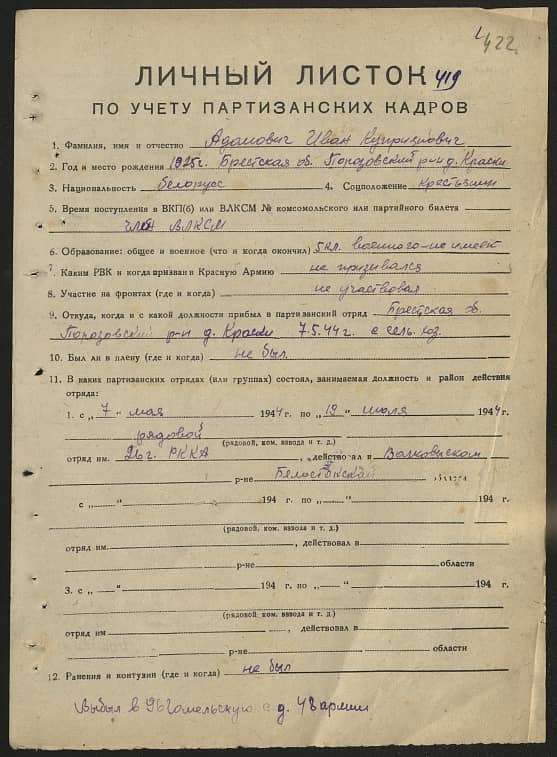 422
ЛИЧНЫЙ ЛИСТОК 419
ПО УЧЕТУ ПАРТИЗАНСКИХ КАДРОВ
1. Фамилия, имя и отчество Адамович Иван Куприянович
2. Год и место рождения 1925г. Брестская об. Порозовский р-н д. Краски
3. Национальность белорусс 4. Соцположение крестьянин
5. Время поступления в ВКП(б) или ВЛКСМ № комсомольского или партийного билета
член ВЛКСМ
6. Образование: общее и военное (что и когда окончил) 5 кл. военного-не имеет
7. Каким РВК и когда призван в Красную Армию не призывался
8. Участие на фронтах (где и когда) не участвовал
9. Откуда, когда и с какой должности прибыл в партизанский отряд Брестская об.
Порозовский р-н д. Краски 7.5.44г. с сель. хоз.
10. Был ли в плену (где и когда) не был.
11. В каких партизанских отрядах (или группах) состоял, занимаемая должность и район действия
отряда:
1. с „7" мая 1944 г. по „19" июля 1944 г.
рядовой
(рядовой, ком. взвода и т. д.)
отряд им. 26 г. РККА, действовал в Волковыском
р-не Белостокской области
с „ " 194 г. по „ " 194 г.
(рядовой, ком. взвода и т. д.)
отряд им. , действовал в
р-не области
3. с „ " 194 г. по „ " 194 г.
(рядовой, ком. взвода и т. д.)
отряд им , действовал в
р-не области
12. Ранения и контузии (где и когда) не был
Выбыл в 96 Гомельскую с д. 48 армии